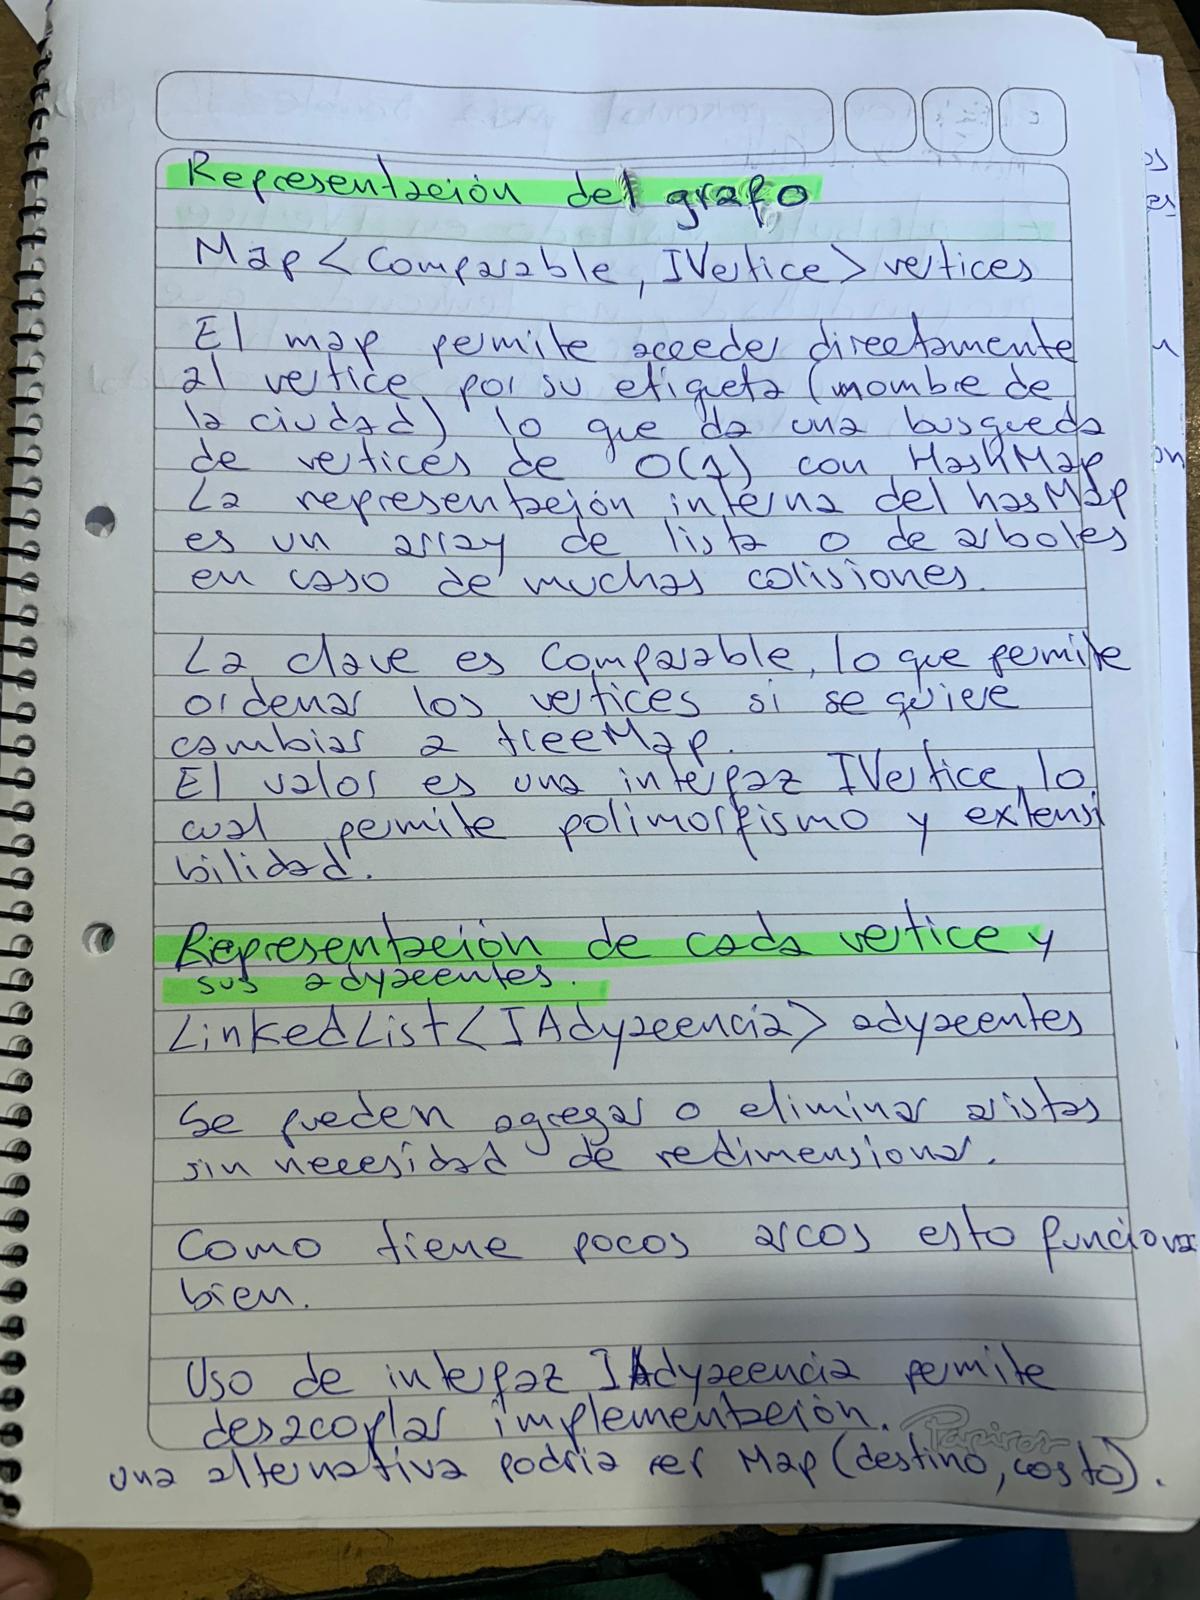 Representación del grafo
Map<Comparable, IVertice> vertices
El map permite acceder directamente
al vertice por su etiqueta (nombre de
la ciudad) lo que da una busqueda
de vertices de O(1) con HashMap
La representación interna del hasMap
es un array de lista o de arboles
en caso de muchas colisiones.
La clave es Comparable, lo que permite
ordenar los vertices si se quiere
cambiar a treeMap.
El valor es una interfaz IVertice, lo
cual permite polimorfismo y extensi
bilidad.
Representación de cada vertice y
sus adyacentes.
LinkedList<IAdyacencia> adyacentes
Se pueden agregar o eliminar aristas
sin necesidad de redimensionar.
Como tiene pocos arcos esto funciona
bien.
Uso de interfaz IAdyacencia permite
desacoplar implementación.
Papiros
una alternativa podria ser Map (destino, costo).